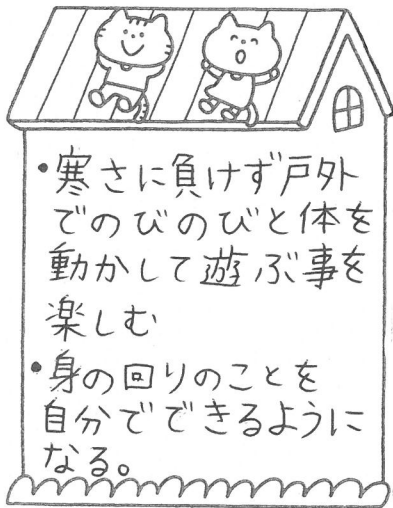 •寒さに負けず戸外
でのびのびと体を
動かして遊ぶ事を
楽しむ
•身の回りのことを
自分でできるように
なる。